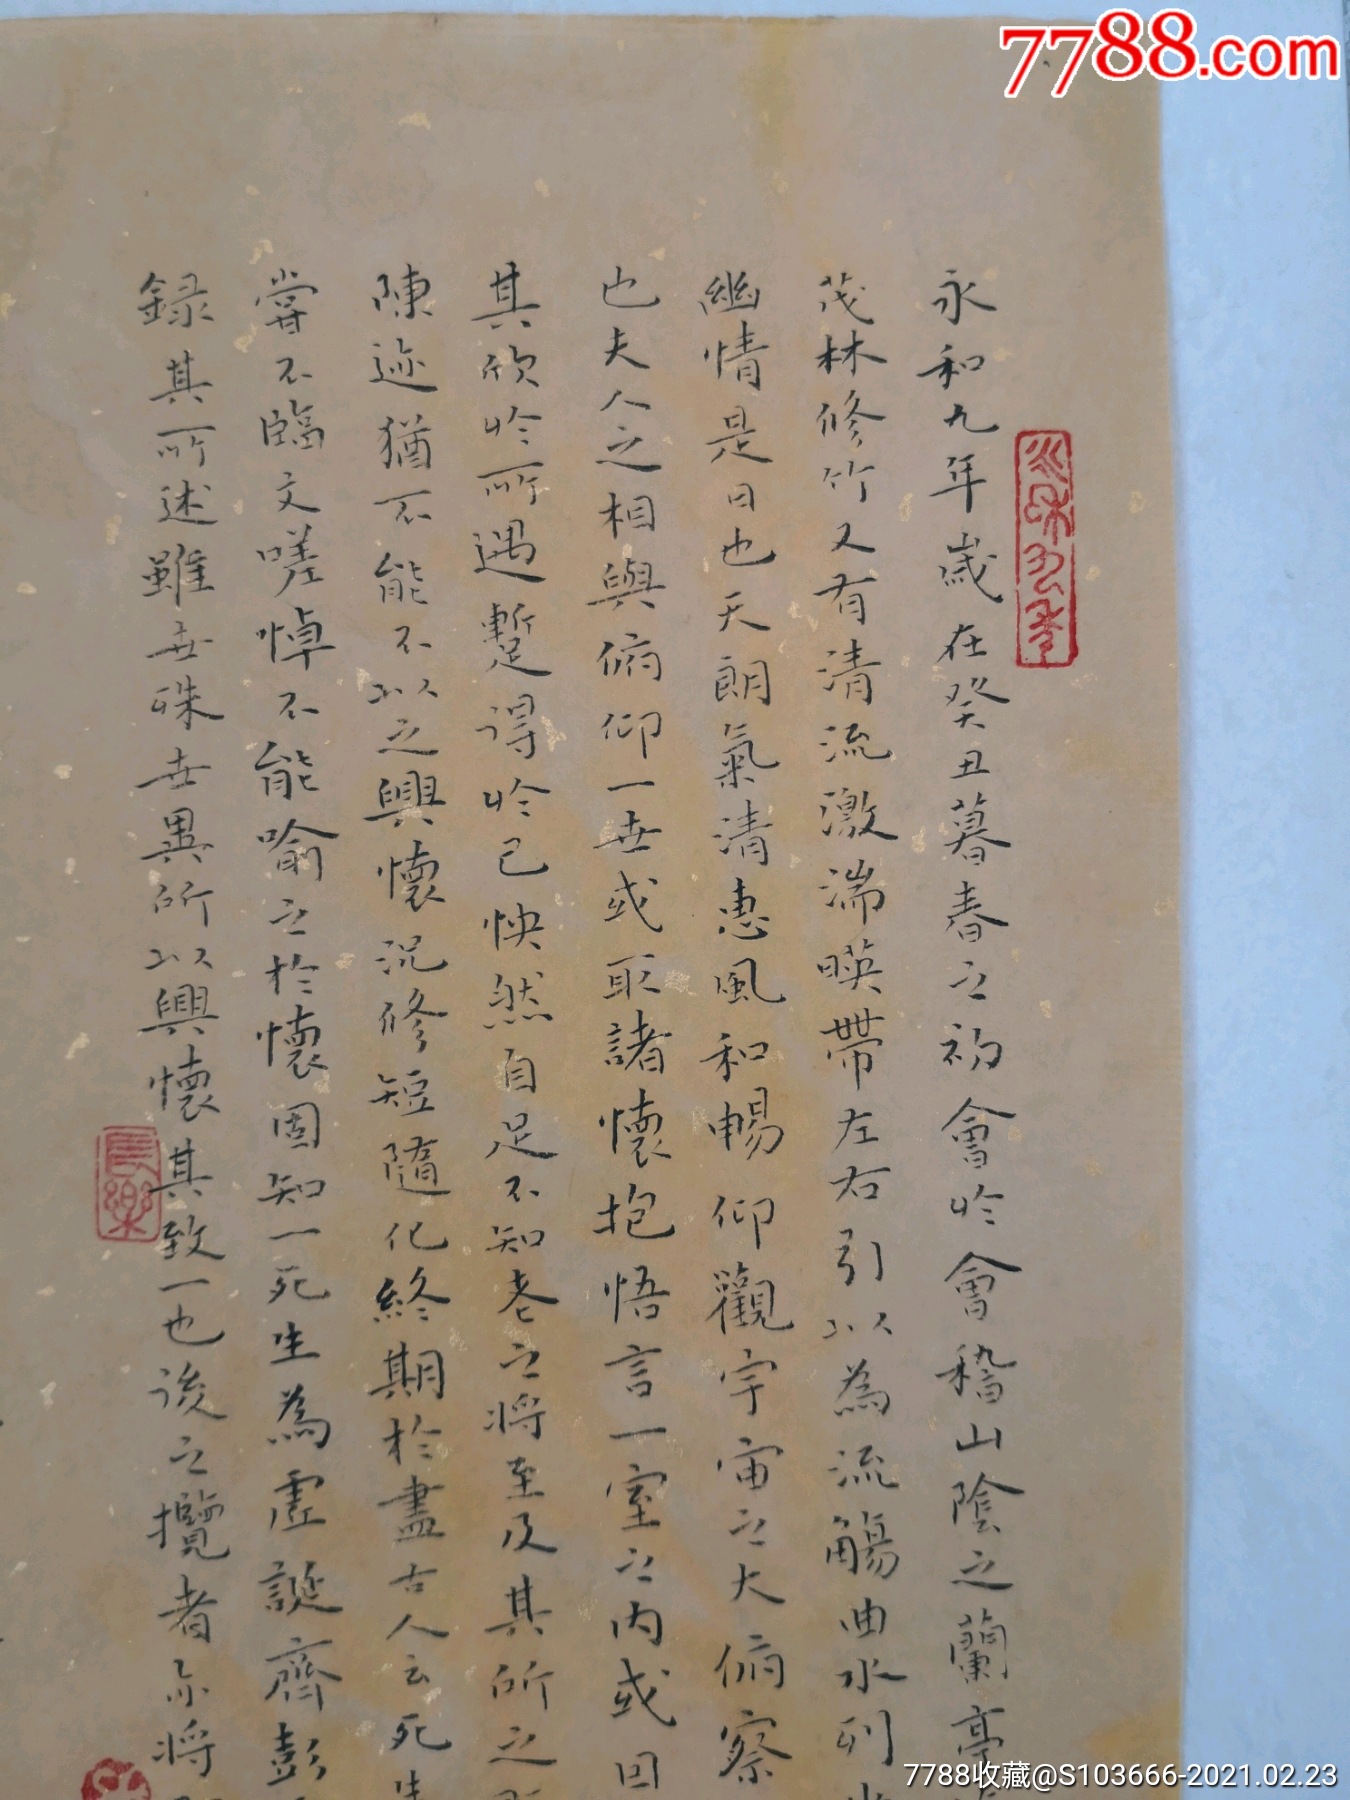 7788.com
永和九年
永和九年歲在癸丑暮春之初會於會稽山陰之蘭亭
茂林修竹又有清流激湍暎帶左右引以為流觴曲水列
幽情是日也天朗氣清惠風和暢仰觀宇宙之大俯察
也夫人之相與俯仰一世或取諸懷抱悟言一室之內或回
其欣於所遇暫得於己怏然自足不知老之將至及其所之
陳迹猶不能不以之興懷況修短隨化終期於盡古人云死生
嘗不臨文嗟悼不能喻之於懷固知一死生為虛誕齊彭
錄其所述雖世殊世異所以興懷其致一也後之攬者亦將
長樂
7788收藏@S103666-2021.02.23